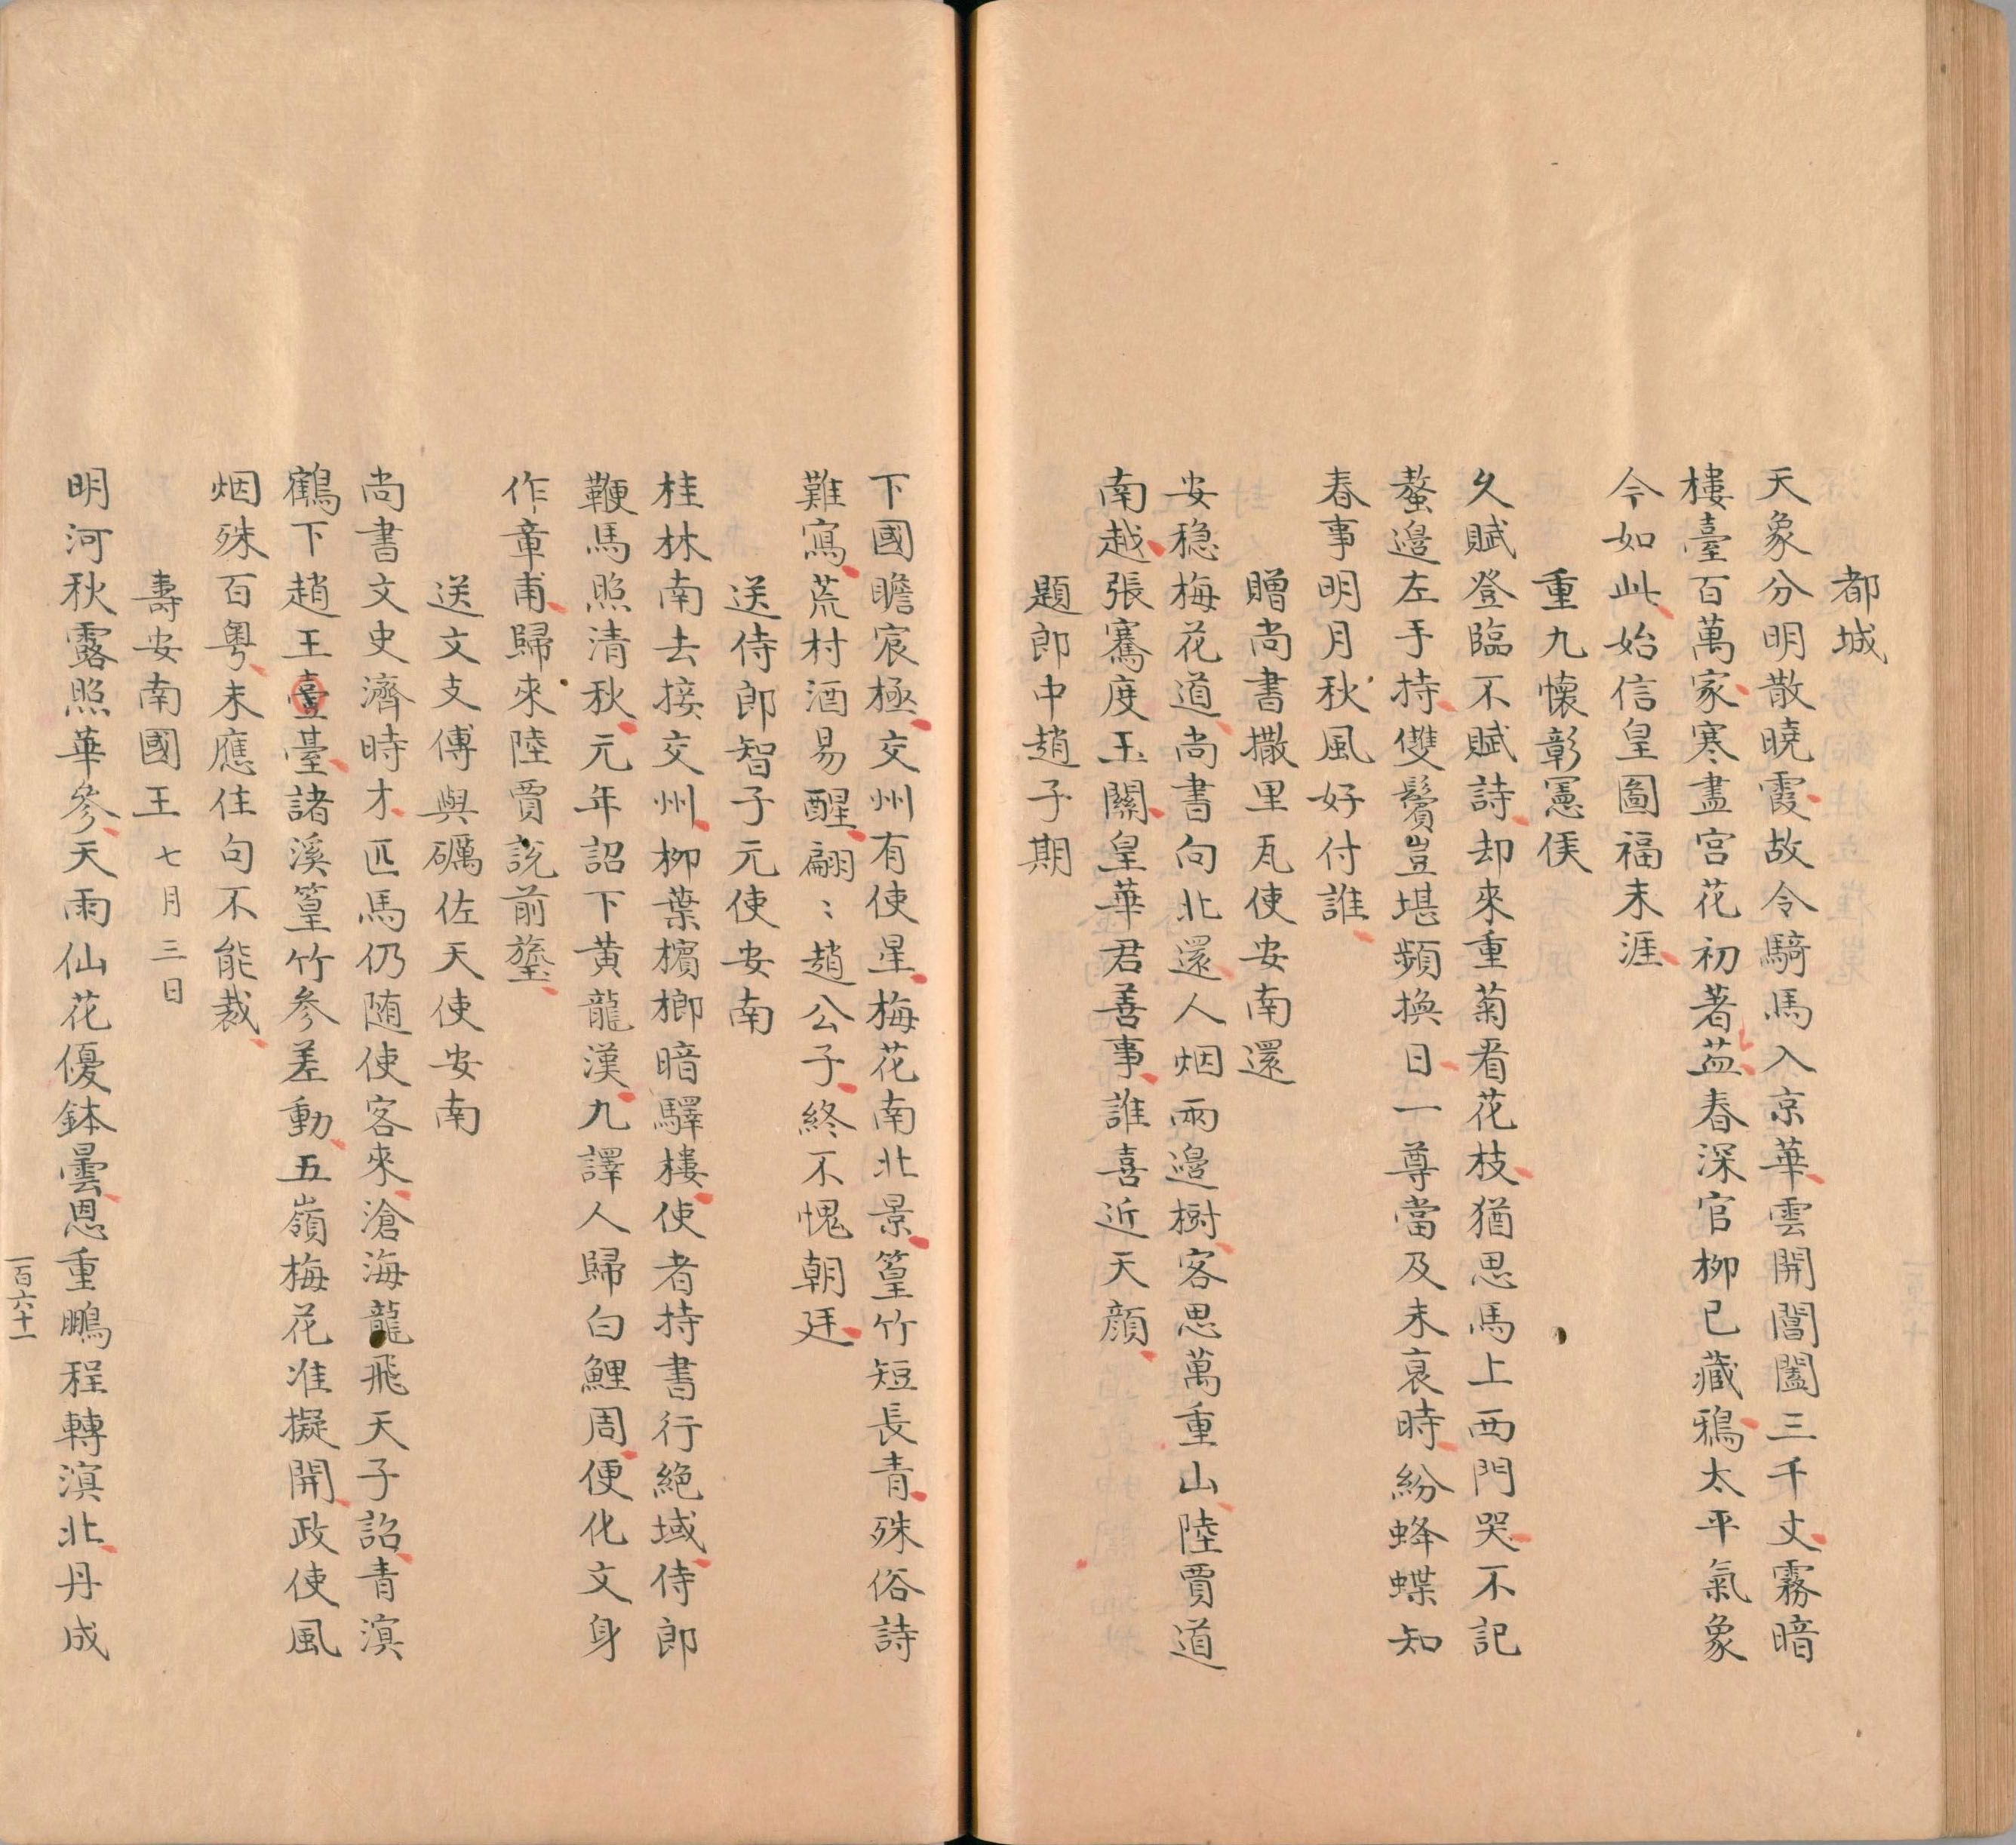 都城
天象分明散曉霞故令騎馬入京華雲開閶闔三千丈霧暗
樓臺百萬家寒盡宮花初著蕋春深官柳已藏鴉太平氣象
今如此始信皇圖福未涯
重九懷彰憲侯
久賦登臨不賦詩却來重菊看花枝猶思馬上西門哭不記
螯邉左手持雙鬢豈堪頻換日一尊當及未衰時紛蜂蝶知
春事明月秋風好付誰
贈尚書撒里瓦使安南還
安穏梅花道尚書向北還人烟兩邉樹客思萬重山陸賈道
南越張騫度玉關皇華君善事誰喜近天顔
題郎中趙子期
下國瞻宸極交州有使星梅花南北景篁竹短長青殊俗詩
難寫荒村酒易醒翩〻趙公子終不愧朝廷
送侍郎智子元使安南
桂林南去接交州柳葉檳榔暗驛樓使者持書行絶域侍郎
鞭馬照清秋元年詔下黄龍漢九譯人歸白鯉周便化文身
作章甫歸來陸賈說前籌
送文支傅與礪佐天使安南
尚書文史濟時才匹馬仍随使客來滄海龍飛天子詔青溟
鶴下趙王臺臺諸溪篁竹参差動五嶺梅花准擬開政使風
烟殊百粤未應佳句不能裁
壽安南國王七月三日
明河秋露照華參天雨仙花優鉢曇恩重鵬程轉溟北丹成
一百六十一